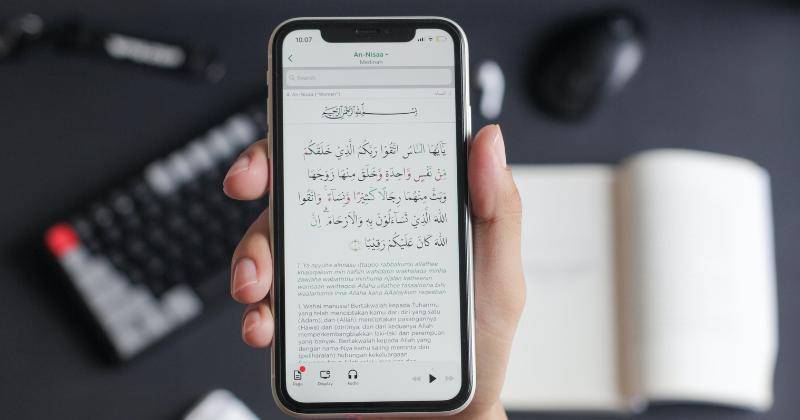 10:07
An-Nisaa
Medinah
Search
4. An-Nisaa ("Women")
بِسْمِ اللهِ الرَّحْمٰنِ الرَّحِيْمِ
يٰٓاَيُّهَا النَّاسُ اتَّقُوْا رَبَّكُمُ الَّذِيْ خَلَقَكُمْ
مِّنْ نَّفْسٍ وَّاحِدَةٍ وَّخَلَقَ مِنْهَا زَوْجَهَا
وَبَثَّ مِنْهُمَا رِجَالًا كَثِيْرًا وَّنِسَاۤءً ۚ وَاتَّقُوا
اللّٰهَ الَّذِيْ تَسَاۤءَلُوْنَ بِهٖ وَالْاَرْحَامَ ۗ اِنَّ
اللّٰهَ كَانَ عَلَيْكُمْ رَقِيْبًا
1. Ya ayyuha alnnasu ittaqoo rabbakumu allathee
khalaqakum min nafsin wahidatin wakhalaqa minha
zawjaha wabaththa minhuma rijalan katheeran
wanisaan waittaqoo Allaha allathee tasaaloona bihi
waalarhama inna Allaha kana AAalaykum raqeeban
1. Wahai manusia! Bertakwalah kepada Tuhanmu
yang telah menciptakan kamu dari diri yang satu
(Adam), dan (Allah) menciptakan pasangannya
(Hawa) dari (diri)nya; dan dari keduanya Allah
memperkembangbiakkan laki-laki dan perempuan
yang banyak. Bertakwalah kepada Allah yang
dengan nama-Nya kamu saling meminta, dan
(peliharalah) hubungan kekeluargaan.
Page Display Audio